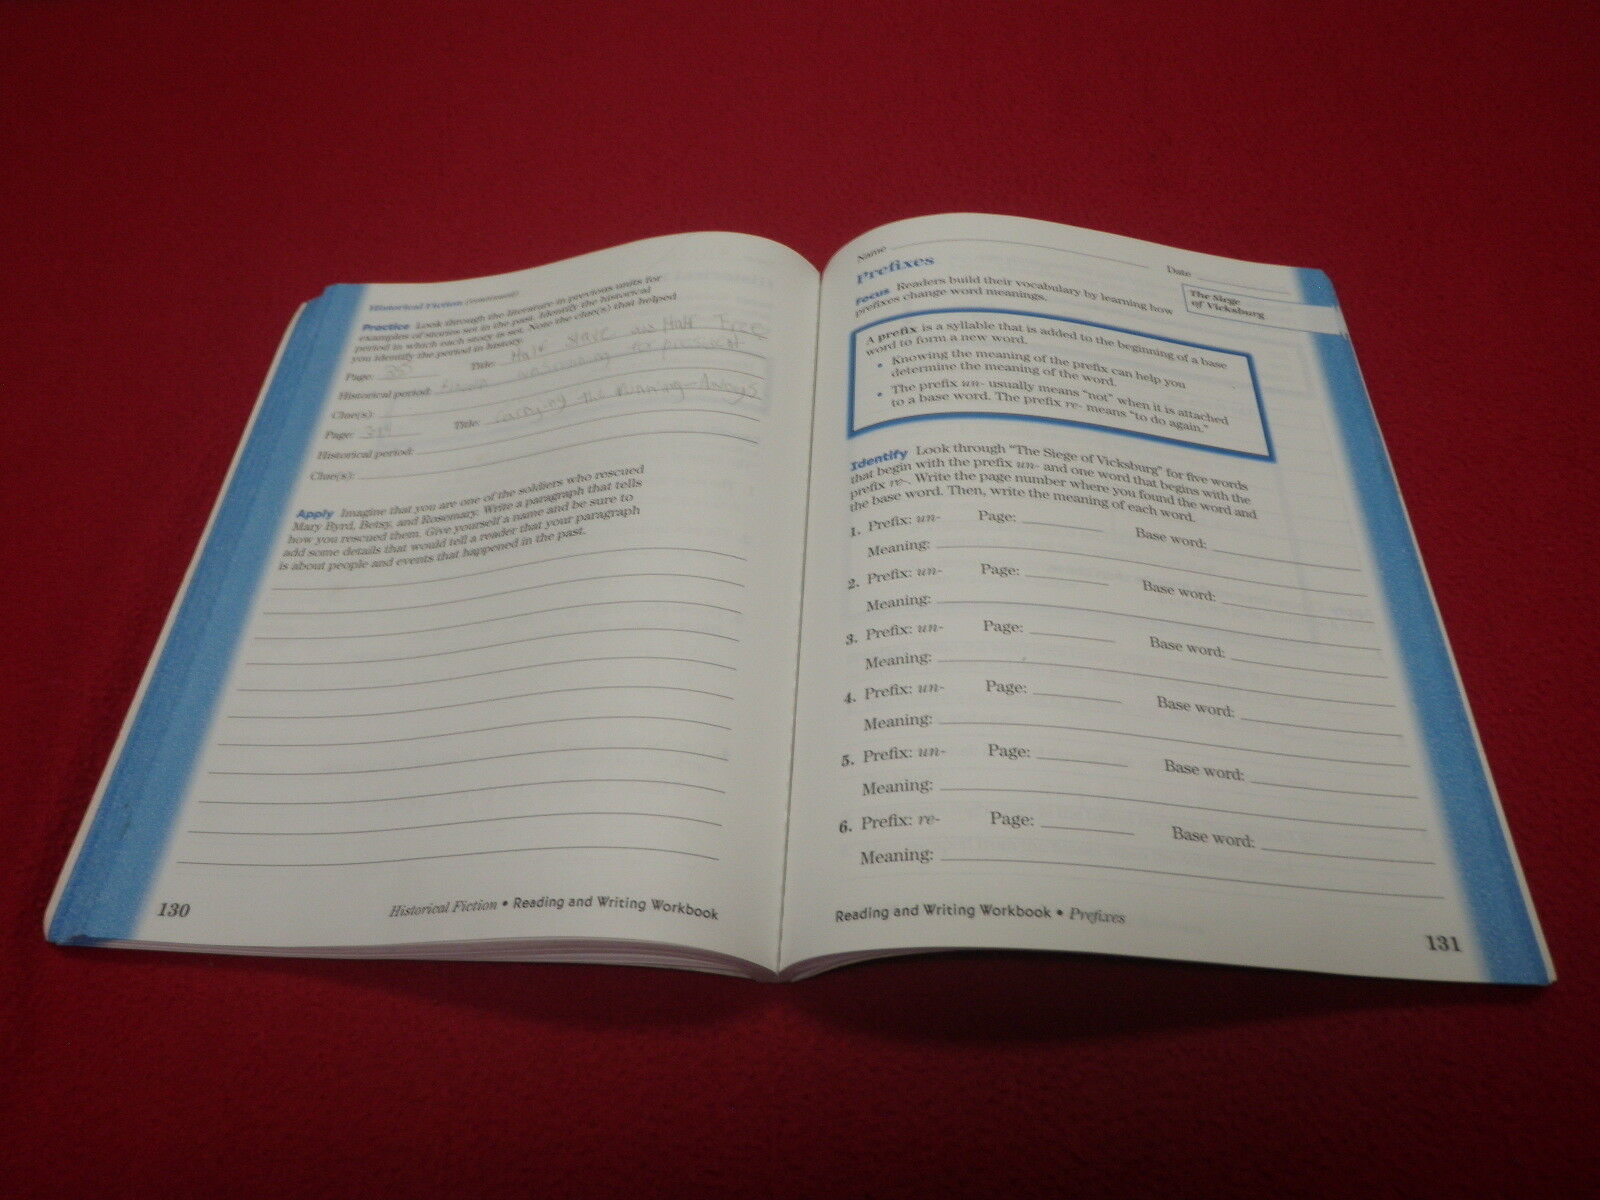 Historical Fiction (continued)
Practice Look through the literature in previous units for
examples of stories set in the past. Identify the historical
period in which each story is set. Note the clue(s) that helped
you identify the period in history.
Page: Title: Half Slave and Half Free
Historical period: running for president
Clue(s):
Page: Title: Carrying the Running-Aways
Historical period:
Clue(s):
Apply Imagine that you are one of the soldiers who rescued
Mary Byrd, Betsy, and Rosemary. Write a paragraph that tells
how you rescued them. Give yourself a name and be sure to
add some details that would tell a reader that your paragraph
is about people and events that happened in the past.
130 Historical Fiction • Reading and Writing Workbook
Name Date
Prefixes
The Siege
of Vicksburg
Focus Readers build their vocabulary by learning how
prefixes change word meanings.
A prefix is a syllable that is added to the beginning of a base
word to form a new word.
• Knowing the meaning of the prefix can help you
determine the meaning of the word.
• The prefix un- usually means "not" when it is attached
to a base word. The prefix re- means "to do again."
Identify Look through "The Siege of Vicksburg" for five words
that begin with the prefix un- and one word that begins with the
prefix re-. Write the page number where you found the word and
the base word. Then, write the meaning of each word.
1. Prefix: un- Page: Base word:
Meaning:
2. Prefix: un- Page: Base word:
Meaning:
3. Prefix: un- Page: Base word:
Meaning:
4. Prefix: un- Page: Base word:
Meaning:
5. Prefix: un- Page: Base word:
Meaning:
6. Prefix: re- Page: Base word:
Meaning:
Reading and Writing Workbook • Prefixes 131